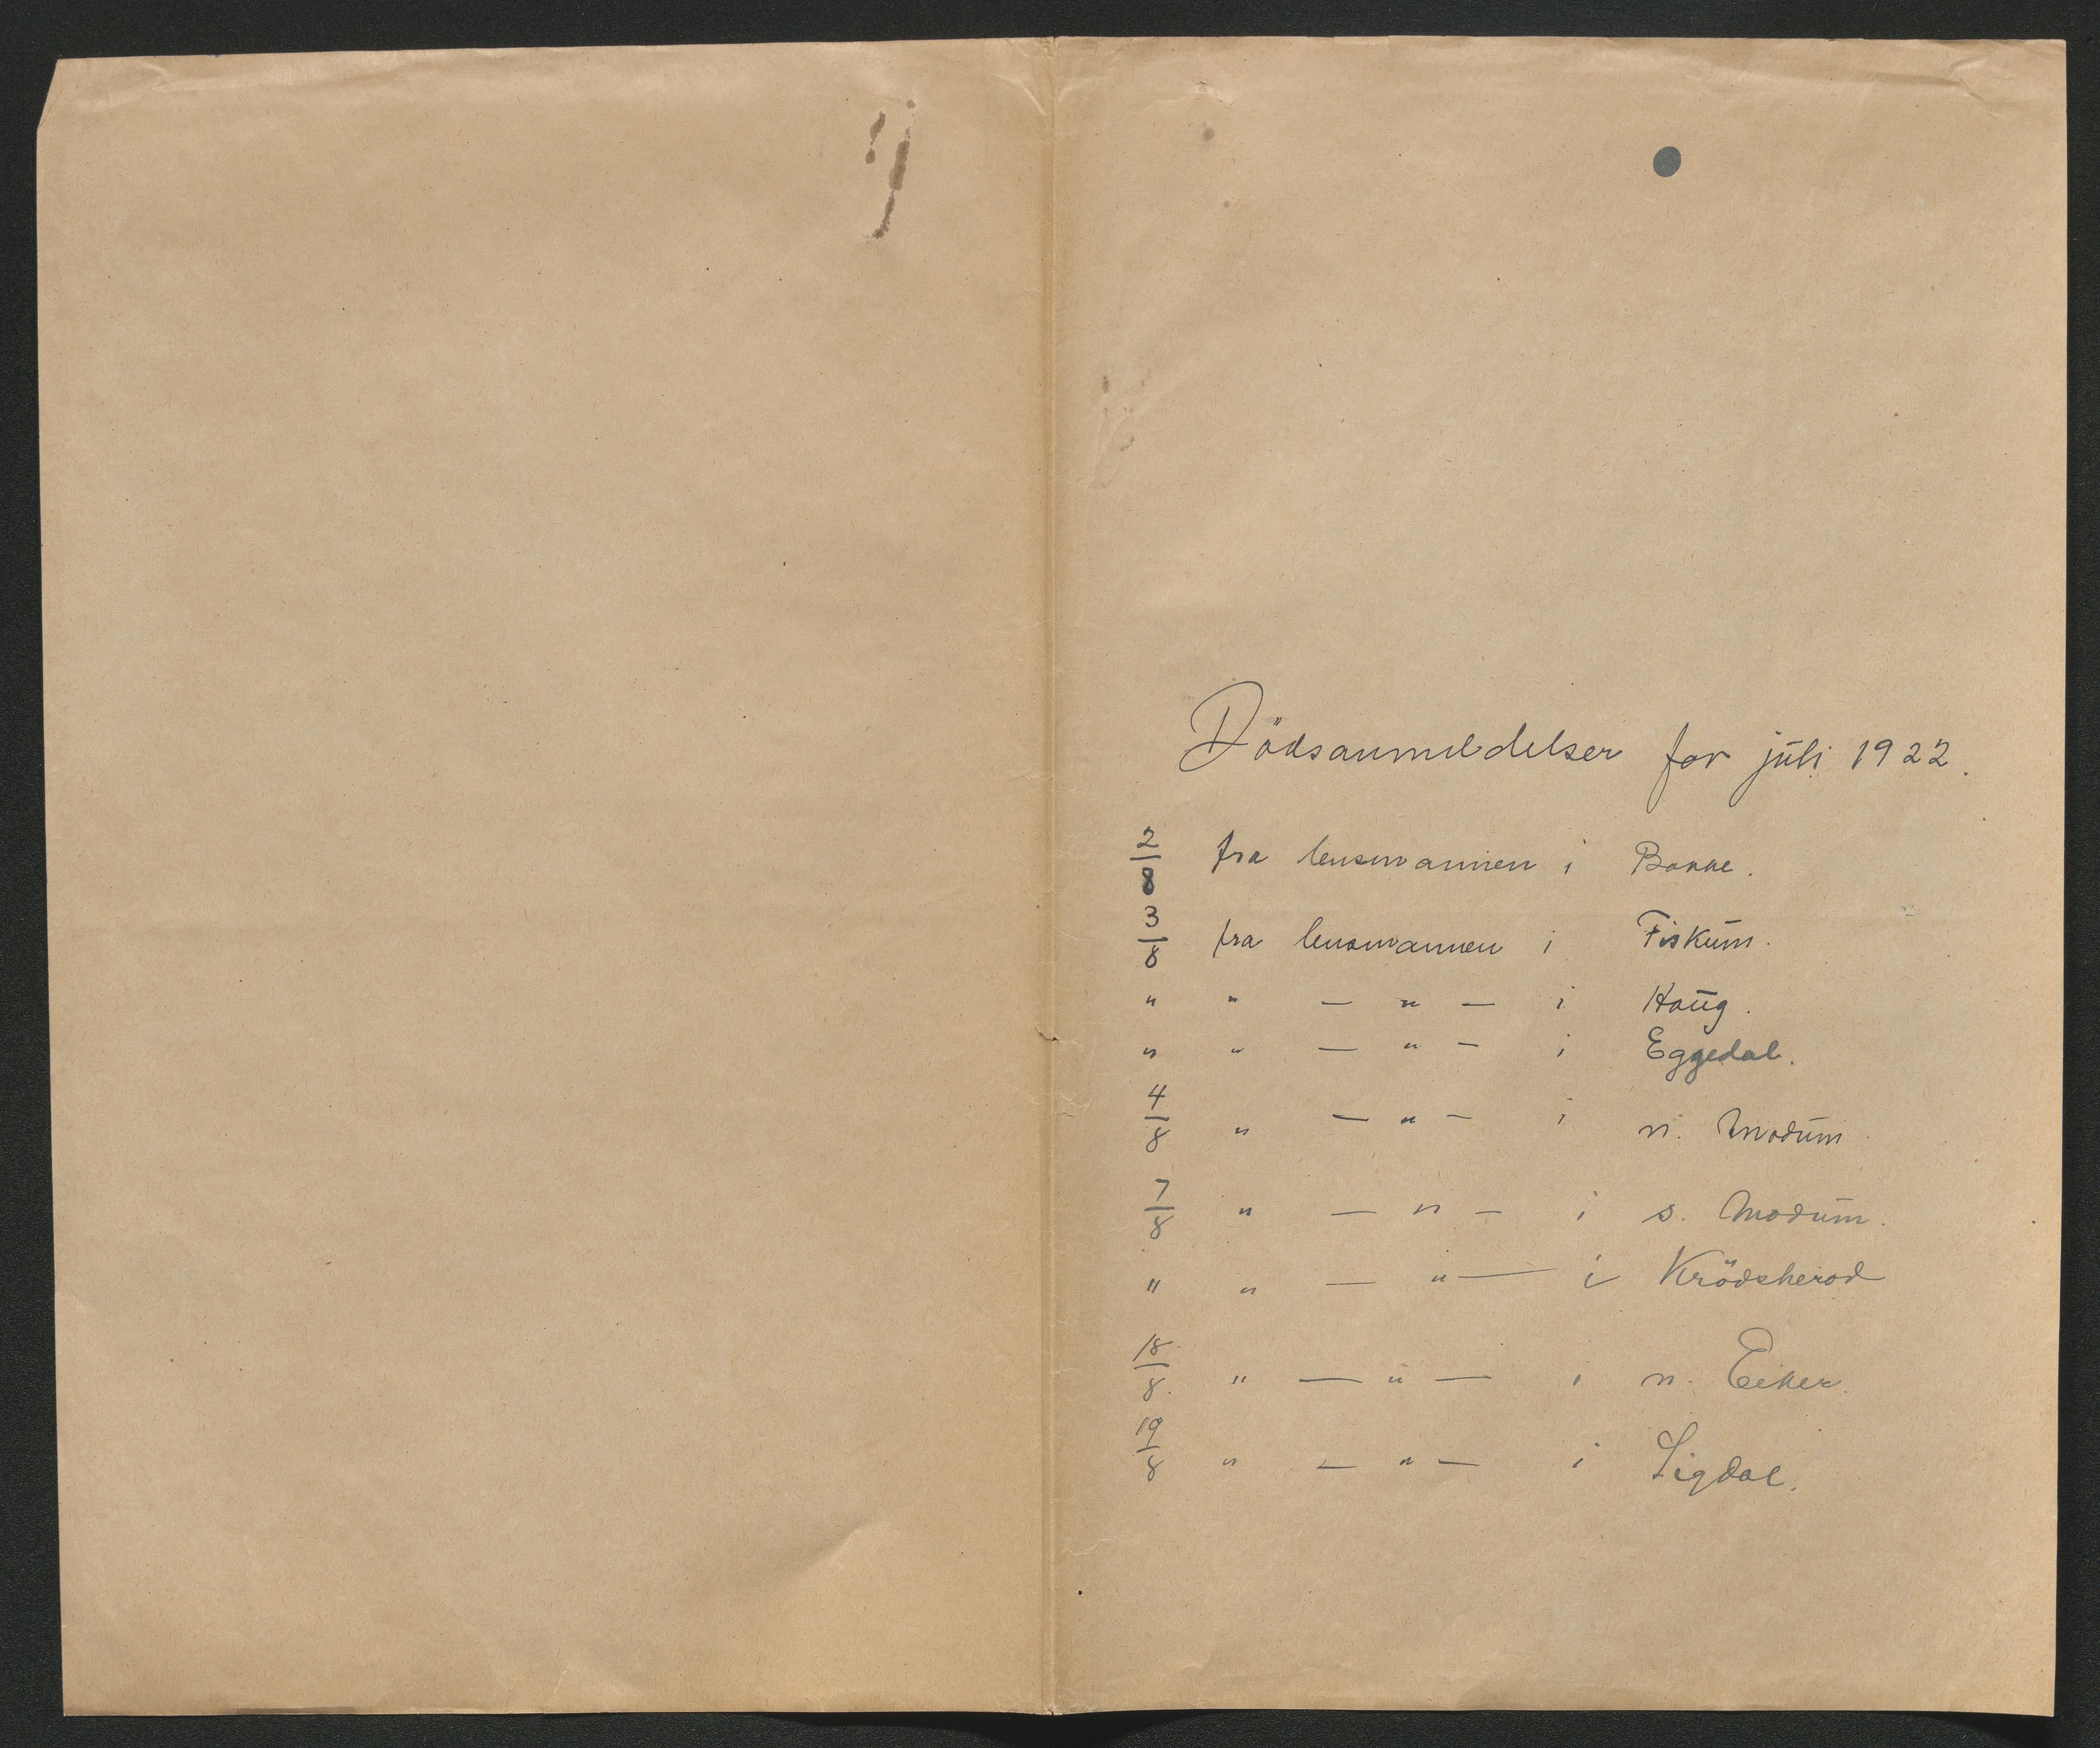 Dödsanmeldelser for juli 1922.
2/8 fra lensmannen i Bakke.
3/8 fra lensmannen i Fiskum.
" " — " — i Haug.
" " — " — i Eggedal.
4/8 " — " — i n. Modum.
7/8 " — " — i s. Modum.
" " — " — i Krödsherod
18/8. " — " — i n. Eiker.
19/8 " — " — i Sigdal.